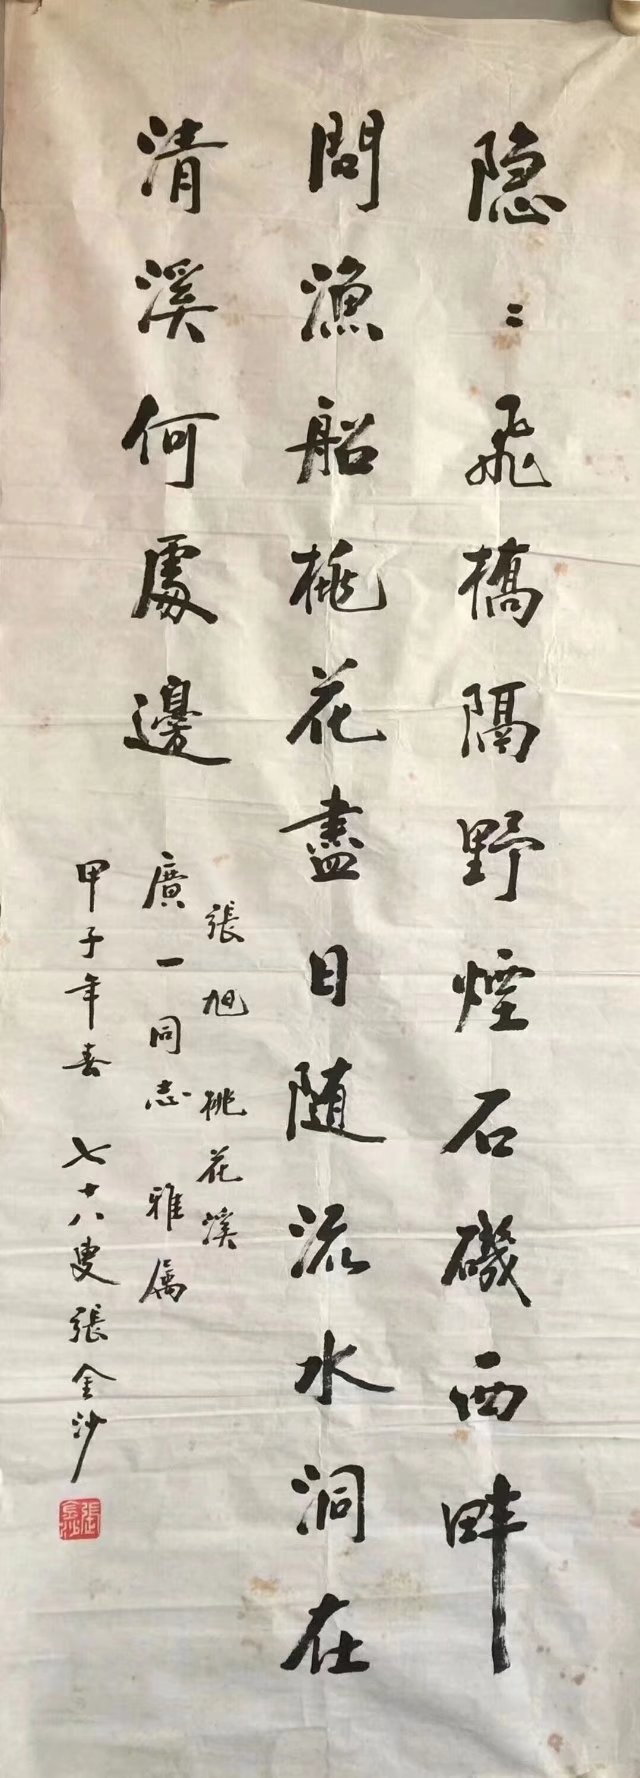 隐〻飛橋隔野煙石磯西畔
問漁船桃花盡日随流水洞在
清溪何處邊
張旭桃花溪
廣一同志雅属
甲子年春七十八叟張金沙